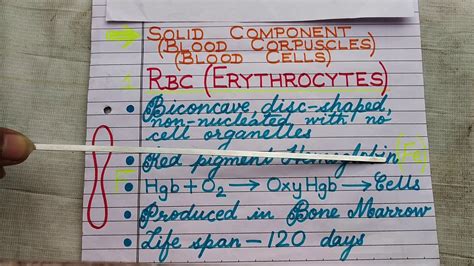 Solid Component
(Blood Corpuscles)
(Blood Cells)
1 RBC (Erythrocytes)
• Biconcave, disc-shaped,
non-nucleated with no
cell organelles
• Red pigment Hemoglobin (Fe)
F Hgb + O2 → OxyHgb → Cells
• Produced in Bone Marrow
• Life span – 120 days